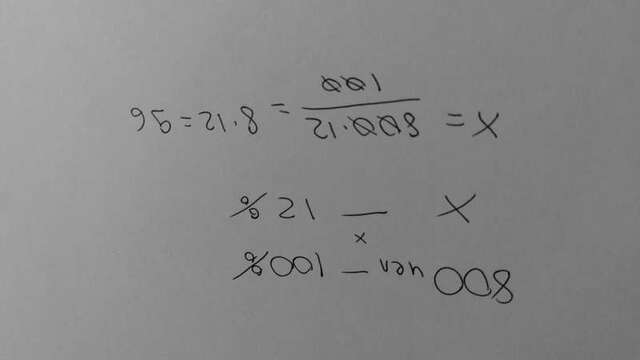 800 чел — 100%
x
X — 12%
X = 800·12 / 100 = 8·12 = 96